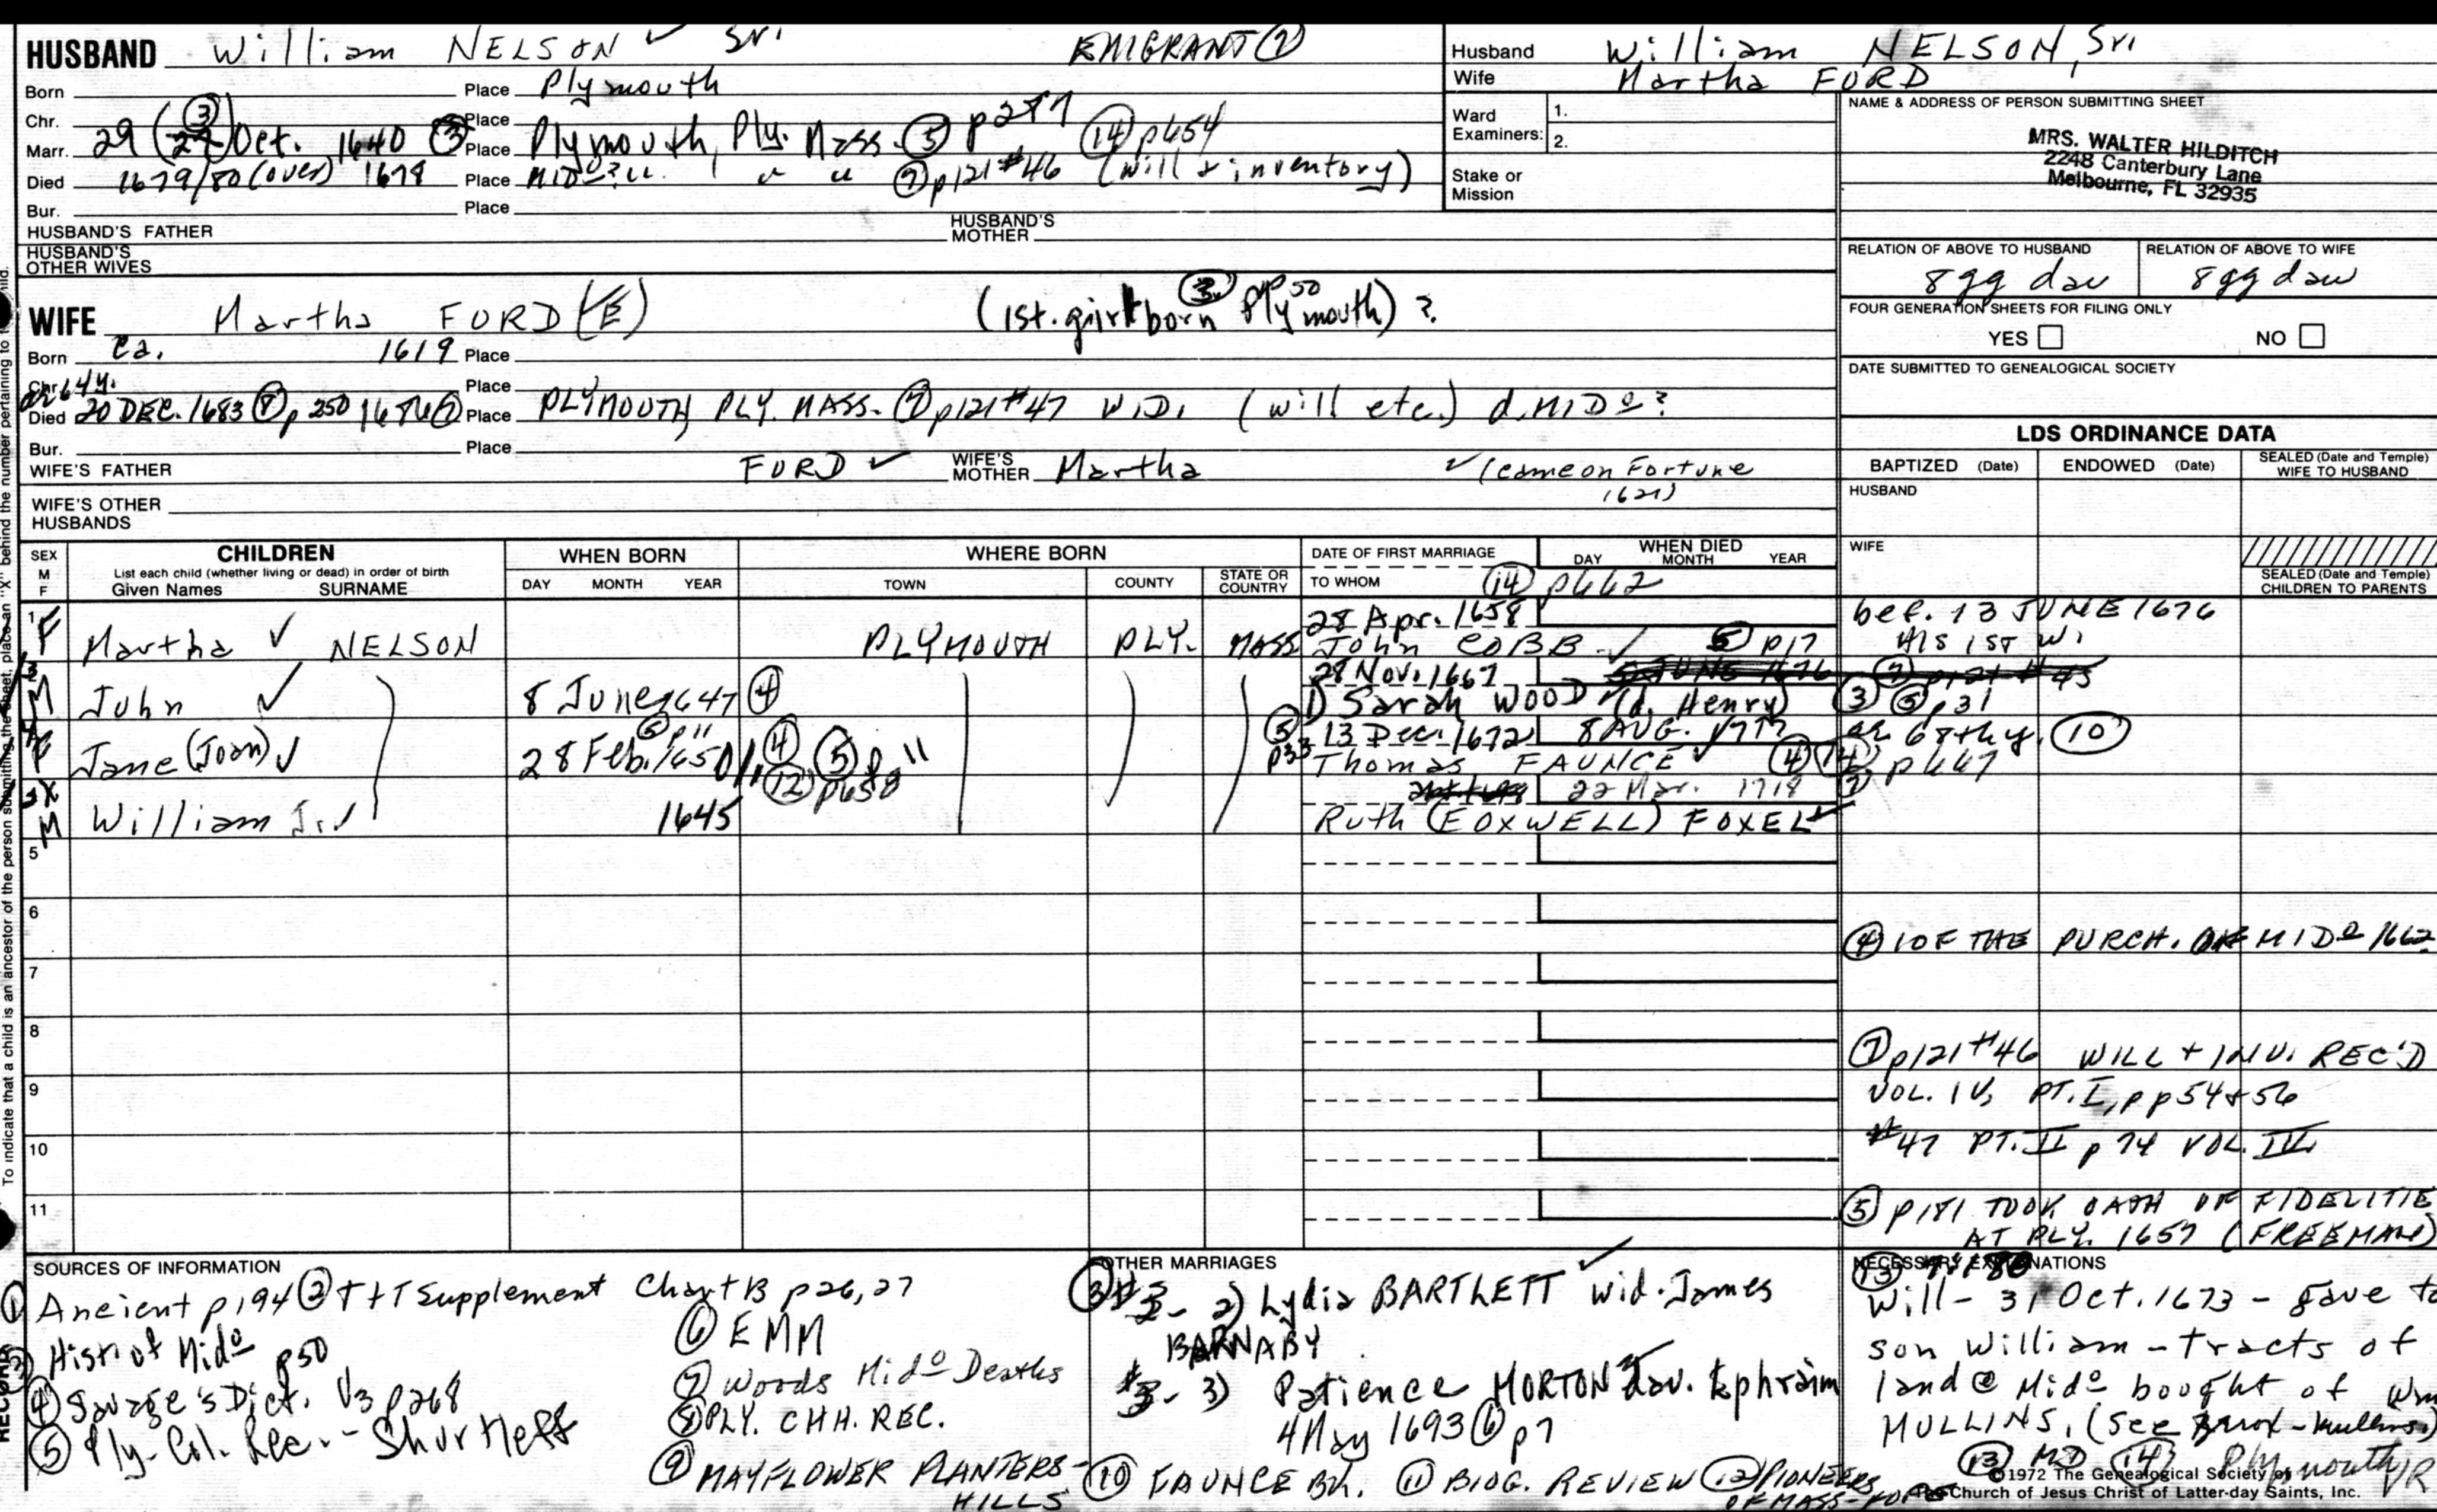 HUSBAND William NELSON ✓ Sr. EMIGRANT (2)
Born Place Plymouth
Chr. Place
Marr. 29 (27 (3)) Oct. 1640 (3) Place Plymouth, Ply. Mass. (5) (14) p654
Died 1679/80 (over) Place MIDº? " " " (7) p121 #46 (will & inventory)
Bur. Place
HUSBAND'S FATHER HUSBAND'S MOTHER
HUSBAND'S OTHER WIVES
WIFE Martha FORD (E) (1st. girl born (3) p50 Plymouth)?
Born ca. 1619 Place
Chr. Place
Died 20 DEC. 1683 (8) p250 Place PLYMOUTH, PLY. MASS. (7) p121 #47 WID. (will etc.) d. MIDº?
Bur. Place
WIFE'S FATHER FORD ✓ WIFE'S MOTHER Martha ✓ (came on Fortune
1621)
WIFE'S OTHER HUSBANDS
Husband William NELSON, Sr.
Wife Martha FORD
Ward Examiners: 1. 2.
Stake or Mission
NAME & ADDRESS OF PERSON SUBMITTING SHEET
MRS. WALTER HILDITCH
2248 Canterbury Lane
Melbourne, FL 32935
RELATION OF ABOVE TO HUSBAND RELATION OF ABOVE TO WIFE
8gg dau 8gg dau
FOUR GENERATION SHEETS FOR FILING ONLY
YES NO
DATE SUBMITTED TO GENEALOGICAL SOCIETY
LDS ORDINANCE DATA
BAPTIZED (Date) ENDOWED (Date) SEALED (Date and Temple) WIFE TO HUSBAND
HUSBAND
WIFE
SEALED (Date and Temple) CHILDREN TO PARENTS
SEX M F CHILDREN WHEN BORN WHERE BORN DATE OF FIRST MARRIAGE WHEN DIED
List each child (whether living or dead) in order of birth
Given Names SURNAME DAY MONTH YEAR TOWN COUNTY STATE OR COUNTRY TO WHOM DAY MONTH YEAR
(14) p662
1 F Martha ✓ NELSON PLYMOUTH PLY. MASS 28 Apr. 1658 bef. 13 JUNE 1676
John COBB ✓ (5) p17 HIS 1ST W.
M John ✓ 8 June 1647 (4) 28 Nov. 1667
1) Sarah WOOD (d. Henry) (3) (5) p31
F Jane (Joan) ✓ 28 Feb. 1650/1 (4) (12) p658 (5) p11 (5) p33 13 Dec. 1672 8 AUG. 1717 ae 68th y. (10)
Thomas FAUNCE ✓ (4) (14) p667
M William Jr. ✓ 1645 22 Mar. 1718 (7)
Ruth (FOXWELL) FOXEL ✓
5
6
(4) 1 OF THE PURCH. OF MIDº 1662
7
8
(7) p121 #46 WILL + INV. REC'D
9
VOL. IV, PT. I, pp 54 & 56
10
#47 PT. II p 74 VOL. IV
11
(5) p181 TOOK OATH OF FIDELITIE
AT PLY. 1657 (FREEMAN)
SOURCES OF INFORMATION
(1) Ancient p194 (2) T+T Supplement Chart B p26,27
(3) Hist of Midº p50
(4) Savage's Dict. V3 p268
(5) Ply. Col. Rec. - Shurtleff
(6) EMM
(7) Woods Midº Deaths
(8) PLY. CHH. REC.
(9) MAYFLOWER PLANTERS - HILLS
(10) FAUNCE Bk. (11) BIOG. REVIEW (12) PIONEERS OF MASS - POPE
OTHER MARRIAGES
2) Lydia BARTLETT ✓ wid. James
BARNABY
3) Patience MORTON dau. Ephraim
4 May 1693 (6) p7
NECESSARY EXPLANATIONS
(13)
Will - 31 Oct. 1673 - gave to
son William - tracts of
land @ Midº bought of Wm
MULLINS.
(13) MD (14) Plymouth VR
©1972 The Genealogical Society of
The Church of Jesus Christ of Latter-day Saints, Inc.